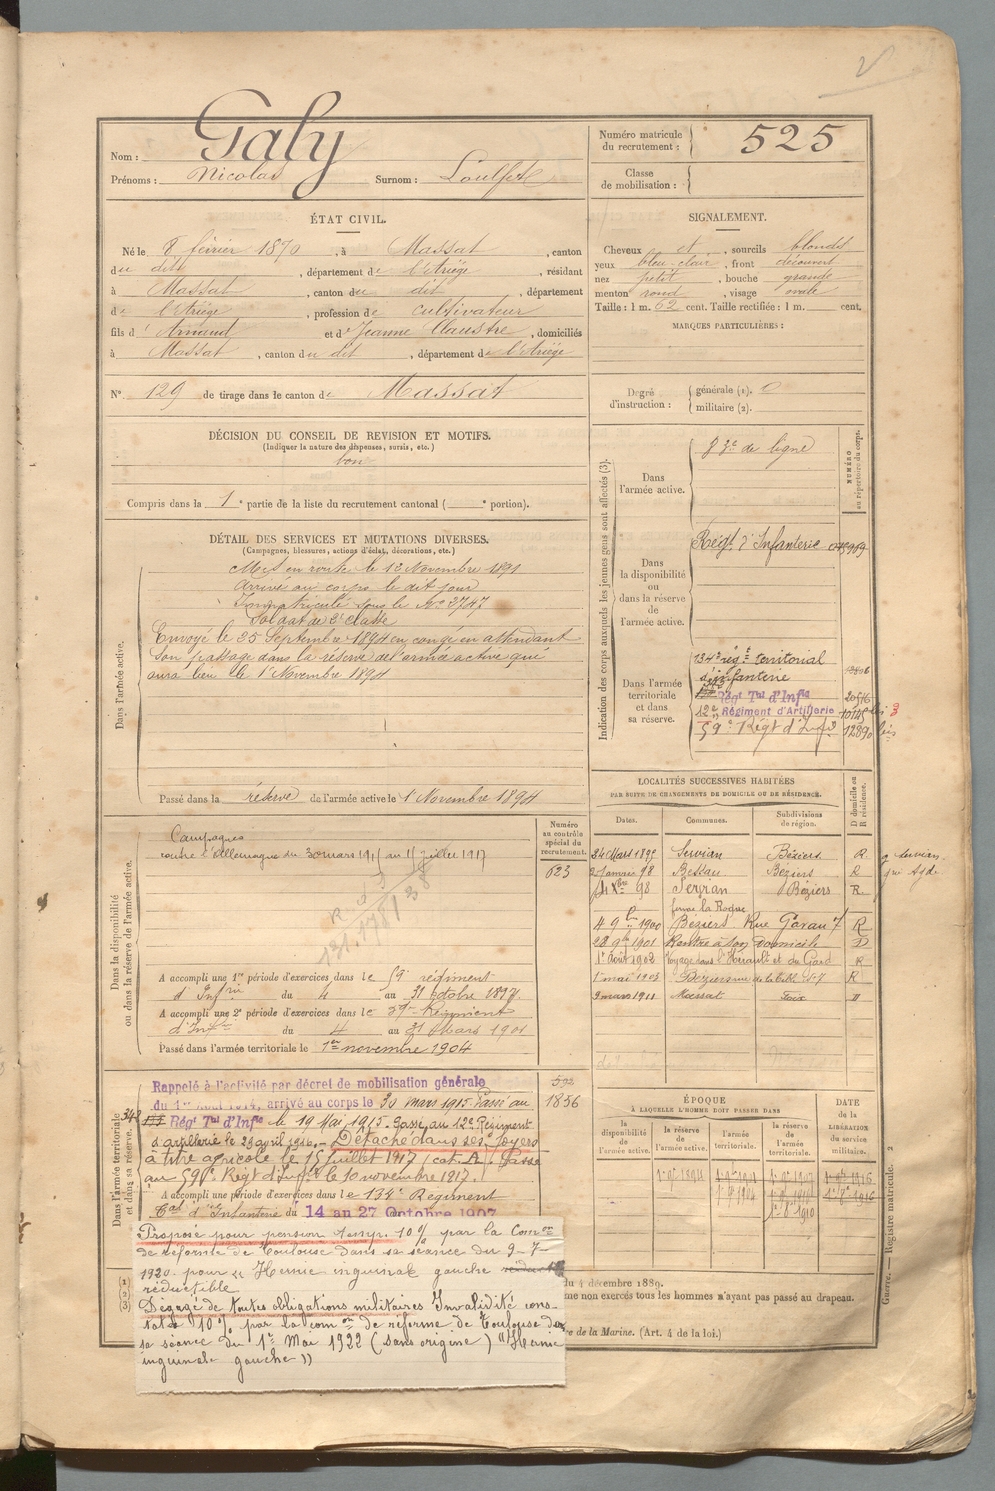 Galy
Nom :
Prénoms : Nicolas Surnom :
Numéro matricule du recrutement : 525
Classe de mobilisation :
ÉTAT CIVIL.
Né le 8 février 1870, à Massat, canton
du dit, département de l'Ariège, résidant
à Massat, canton du dit, département
de l'Ariège, profession de cultivateur
fils d'Arnaud et de Jeanne Claustre, domiciliés
à Massat, canton du dit, département de l'Ariège
N° 129 de tirage dans le canton de Massat
SIGNALEMENT.
Cheveux et, sourcils blonds
yeux bleu-clair, front découvert
nez petit, bouche grande
menton rond, visage ovale
Taille : 1 m. 62 cent. Taille rectifiée : 1 m. cent.
MARQUES PARTICULIÈRES :
Degré d'instruction : générale (1). 0
militaire (2).
DÉCISION DU CONSEIL DE REVISION ET MOTIFS.
(Indiquer la nature des dispenses, sursis, etc.)
bon
Compris dans la 1e partie de la liste du recrutement cantonal ( e portion).
DÉTAIL DES SERVICES ET MUTATIONS DIVERSES.
(Campagnes, blessures, actions d'éclat, décorations, etc.)
Dans l'armée active.
Mis en route le 13 Novembre 1891
Arrivé au corps le dit jour
Immatriculé sous le No 3747
Soldat de 2e classe
Envoyé le 25 Septembre 1894 en congé en attendant
son passage dans la réserve de l'armée active qui
aura lieu le 1e Novembre 1894
Passé dans la réserve de l'armée active le 1 Novembre 1894
Indication des corps auxquels les jeunes gens sont affectés (3).
NUMÉRO au répertoire du corps.
Dans l'armée active.
83e de ligne
Dans la disponibilité ou dans la réserve de l'armée active.
Régt d'Infanterie
Dans l'armée territoriale et dans sa réserve.
134e régt territorial
d'infanterie
Régt Tal d'Infie
12e Régiment d'Artillerie
59e Régt d'Infie 12890 bis
LOCALITÉS SUCCESSIVES HABITÉES
PAR SUITE DE CHANGEMENTS DE DOMICILE OU DE RÉSIDENCE.
Dates. Communes. Subdivisions de région. D domicile ou R résidence.
24 Mars 1895 Servian Béziers R
Janvier 98 Bessan Béziers R
Xbre 98 Sérignan Béziers R
ferme la Roque
4 9 1900 Béziers Rue 7 R
22 9bre 1901 Rentré à son domicile D
1er Août 1902 Voyage dans l'Hérault et du Gard R
1 mai 1903 Béziers R
9 mars 1911 Massat Foix
Dans la disponibilité ou dans la réserve de l'armée active.
Numéro au contrôle spécial du recrutement.
623
Campagnes
contre l'Allemagne du 30 mars 1915 au 15 juillet 1917
A accompli une 1re période d'exercices dans le 59e régiment
d'Infrie du 4 au 31 octobre 1897.
A accompli une 2e période d'exercices dans le 59e Régiment
d'Infie du 4 au 31 Mars 1901
Passé dans l'armée territoriale le 1er novembre 1904
Dans l'armée territoriale et dans sa réserve.
592
1856
Rappelé à l'activité par décret de mobilisation générale
du 1er Août 1914, arrivé au corps le 30 mars 1915. Passé au
Régt Tal d'Infie le 19 Mai 1915. Passé au 12e Régiment
d'artillerie le 23 avril 1916. Détaché dans ses foyers
à titre agricole le 15 juillet 1917 (cat. A). Passé
au 59e Régt d'Infie le 10 novembre 1917.
A accompli une période d'exercices dans le 134e Régiment
Tal d'Infanterie du 14 au 27 Octobre 1907
Proposé pour pension temp. 10% par la Comon
de réforme de Toulouse dans sa séance du 9-7-
1920 pour « Hernie inguinale gauche
réductible
Dégagé de toutes obligations militaires. Invalidité cons-
tatée 10% par la comon de réforme de Toulouse dans
sa séance du 1er Mai 1922 (sans origine) "Hernie
inguinale gauche"
ÉPOQUE
À LAQUELLE L'HOMME DOIT PASSER DANS
la disponibilité de l'armée active.
la réserve de l'armée active.
l'armée territoriale.
la réserve de l'armée territoriale.
DATE de la LIBÉRATION du service militaire.
(1)
(2)
(3)
du 4 décembre 1889.
me non exercés tous les hommes n'ayant pas passé au drapeau.
re de la Marine. (Art. 4 de la loi.)
Guerre. — Registre matricule. 2